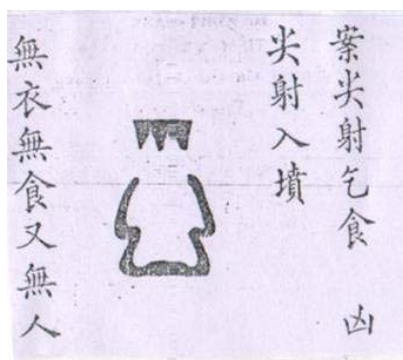 案尖射乞食　凶
尖射入墳
無衣無食又無人